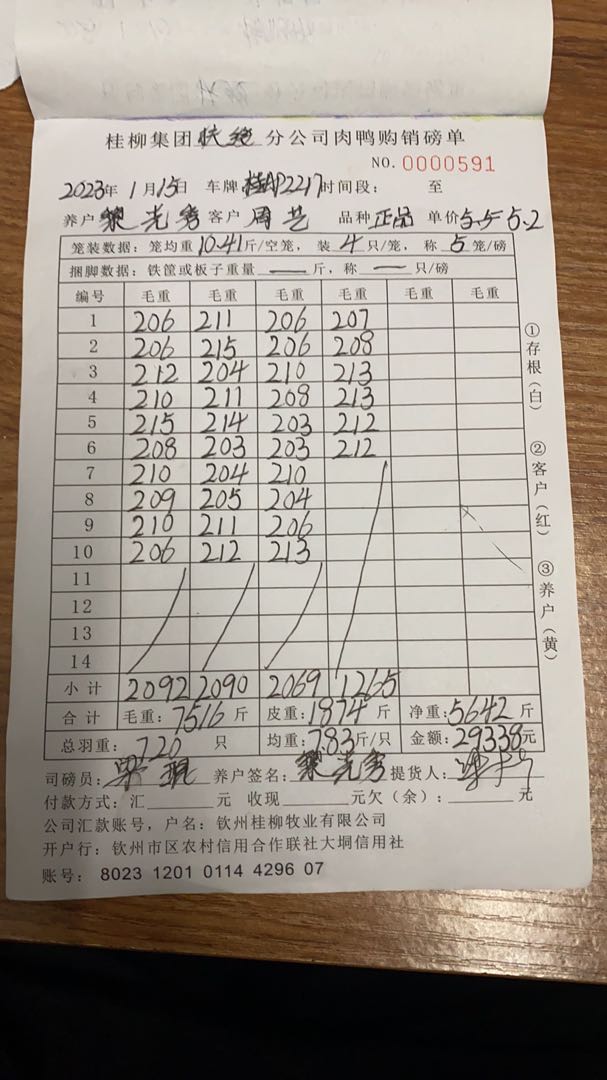 桂柳集团钦绝分公司肉鸭购销磅单
NO. 0000591
2023年1月15日 车牌桂AP2217时间段: 至
养户黎光秀客户周艺 品种正品 单价5.5 5.2
笼装数据:笼均重10.41斤/空笼,装4只/笼,称5笼/磅
捆脚数据:铁筐或板子重量—斤,称—只/磅
编号 毛重 毛重 毛重 毛重 毛重 毛重
1 206 211 206 207
2 206 215 206 208
3 212 204 210 213
4 210 211 208 213
5 215 214 203 212
6 208 203 203 212
7 210 204 210
8 209 205 204
9 210 211 206
10 206 212 213
11
12
13
14
小计 2092 2090 2069 1265
合计 毛重:7516斤 皮重:1874斤 净重:5642斤
总羽重:720只 均重:7.83斤/只 金额:29338元
司磅员: 养户签名:黎光秀 提货人:
付款方式:汇______元 收现______元欠(余):______元
公司汇款账号,户名:钦州桂柳牧业有限公司
开户行:钦州市区农村信用合作联社大垌信用社
账号: 8023 1201 0114 4296 07
①存根(白)
②客户(红)
③养户(黄)